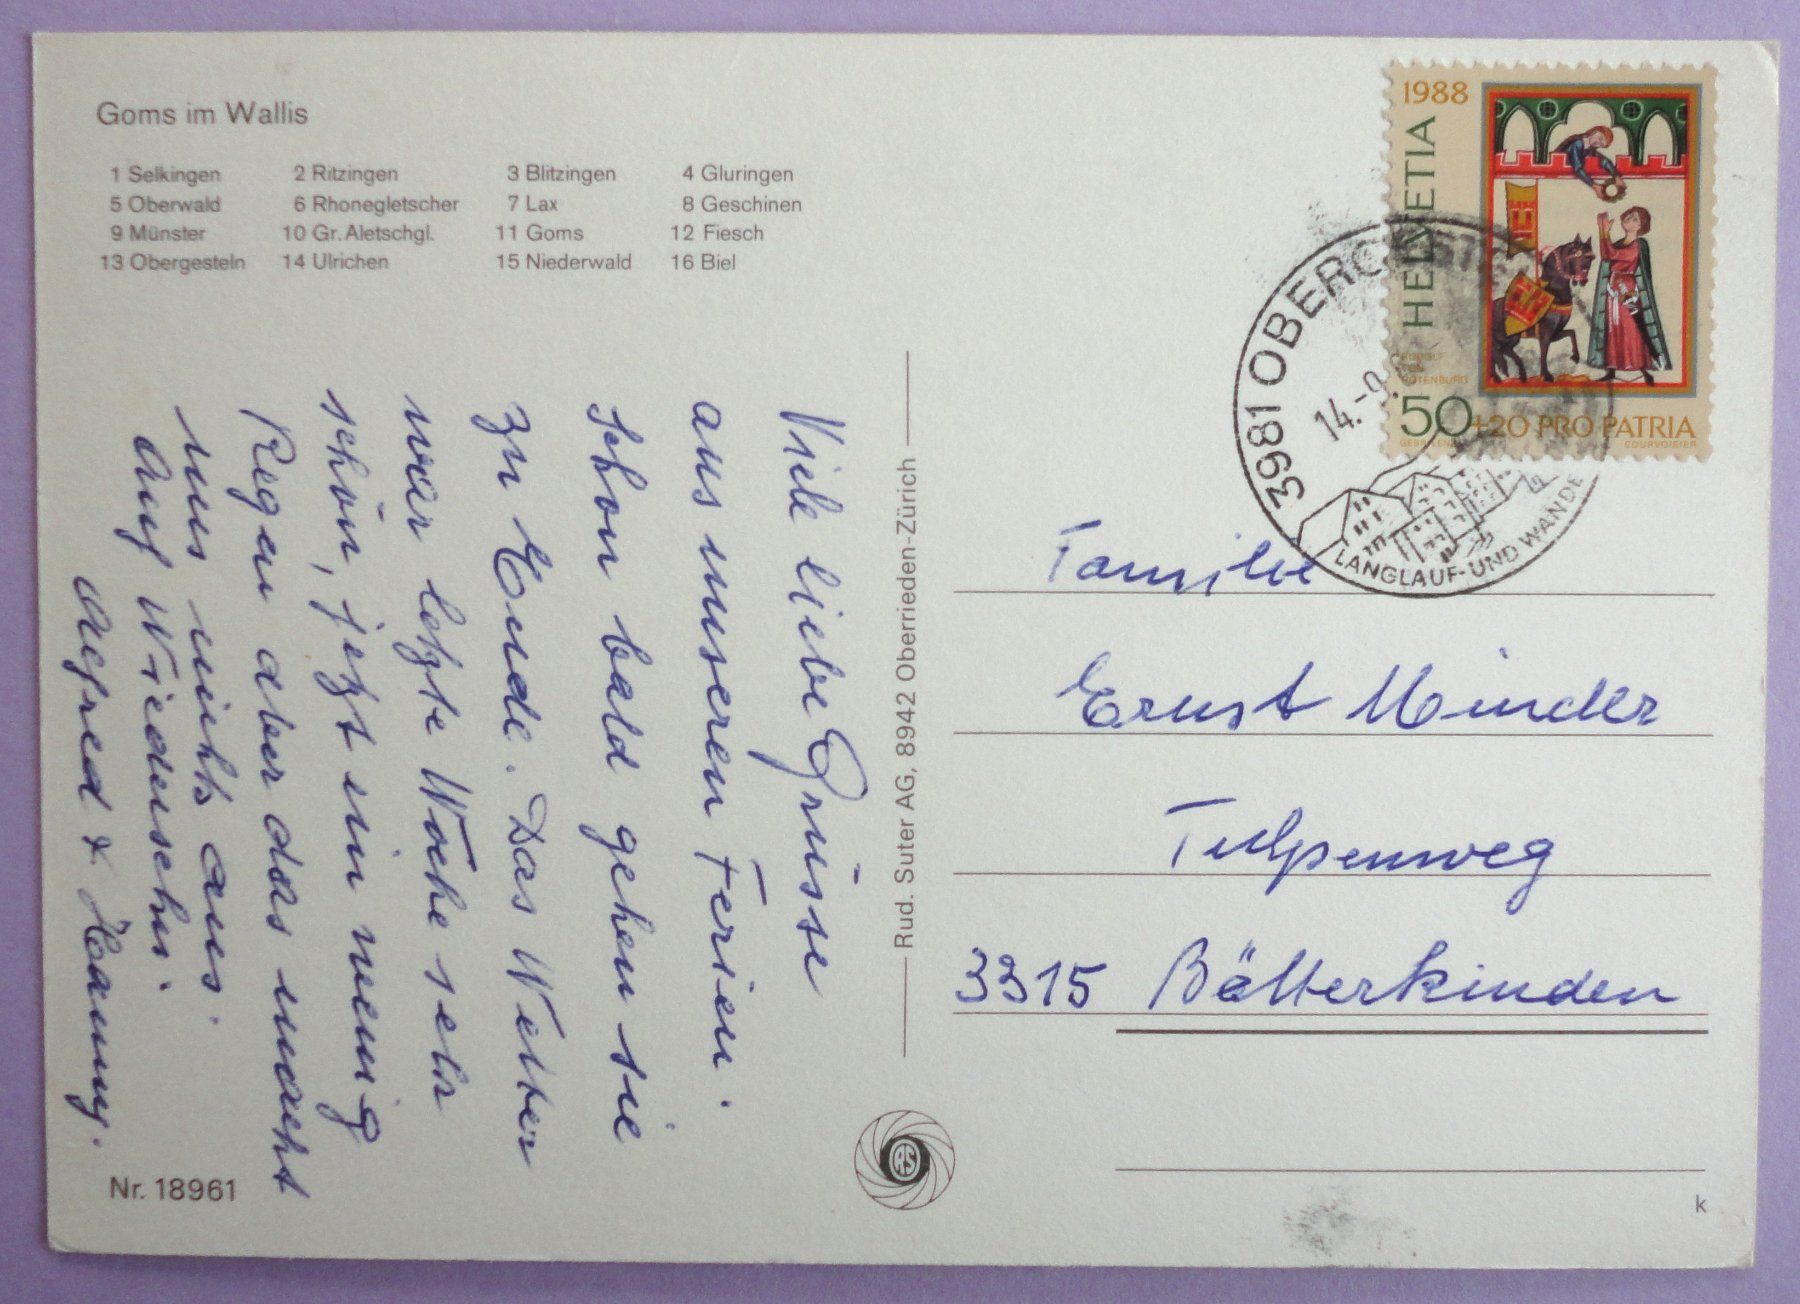 Goms im Wallis
1 Selkingen 2 Ritzingen 3 Blitzingen 4 Gluringen
5 Oberwald 6 Rhonegletscher 7 Lax 8 Geschinen
9 Münster 10 Gr. Aletschgl. 11 Goms 12 Fiesch
13 Obergesteln 14 Ulrichen 15 Niederwald 16 Biel
Viele liebe Grüsse
aus unseren Ferien.
Schon bald gehen sie
zu Ende. Das Wetter
war letzte Woche sehr
schön, jetzt ein wenig
Regen aber das macht
uns nichts aus.
Auf Wiedersehn.
Alfred & Hanny.
Nr. 18961
Rud. Suter AG, 8942 Oberrieden-Zürich
RS
1988
HELVETIA
RUDOLF
VON
ROTENBURG
50+20 PRO PATRIA
COURVOISIER
3981 OBERGESTELN
14.-9.
LANGLAUF- UND WANDE
Familie
Ernst Minder
Tulpenweg
3315 Bätterkinden
k